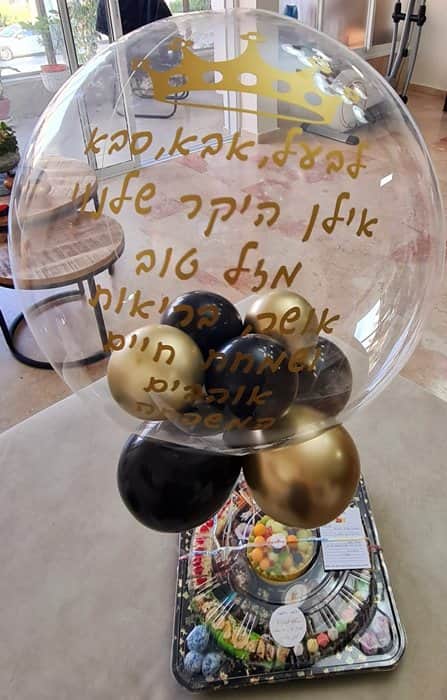 לבעל, אבא, סבא
אילן היקר שלנו
מזל טוב
אושר, בריאות
ושמחת חיים
אוהבים
המשפחה